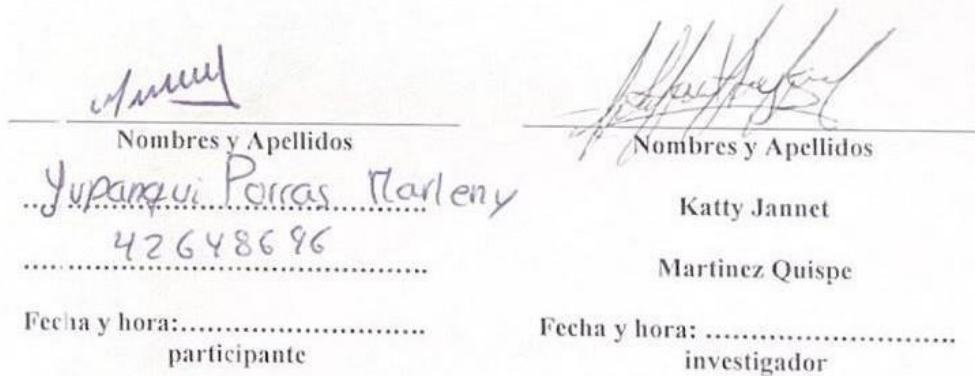 Nombres y Apellidos
Yupanqui Porras Marleny
42648696
Fecha y hora:..........................
participante
Nombres y Apellidos
Katty Jannet
Martinez Quispe
Fecha y hora: ..........................
investigador